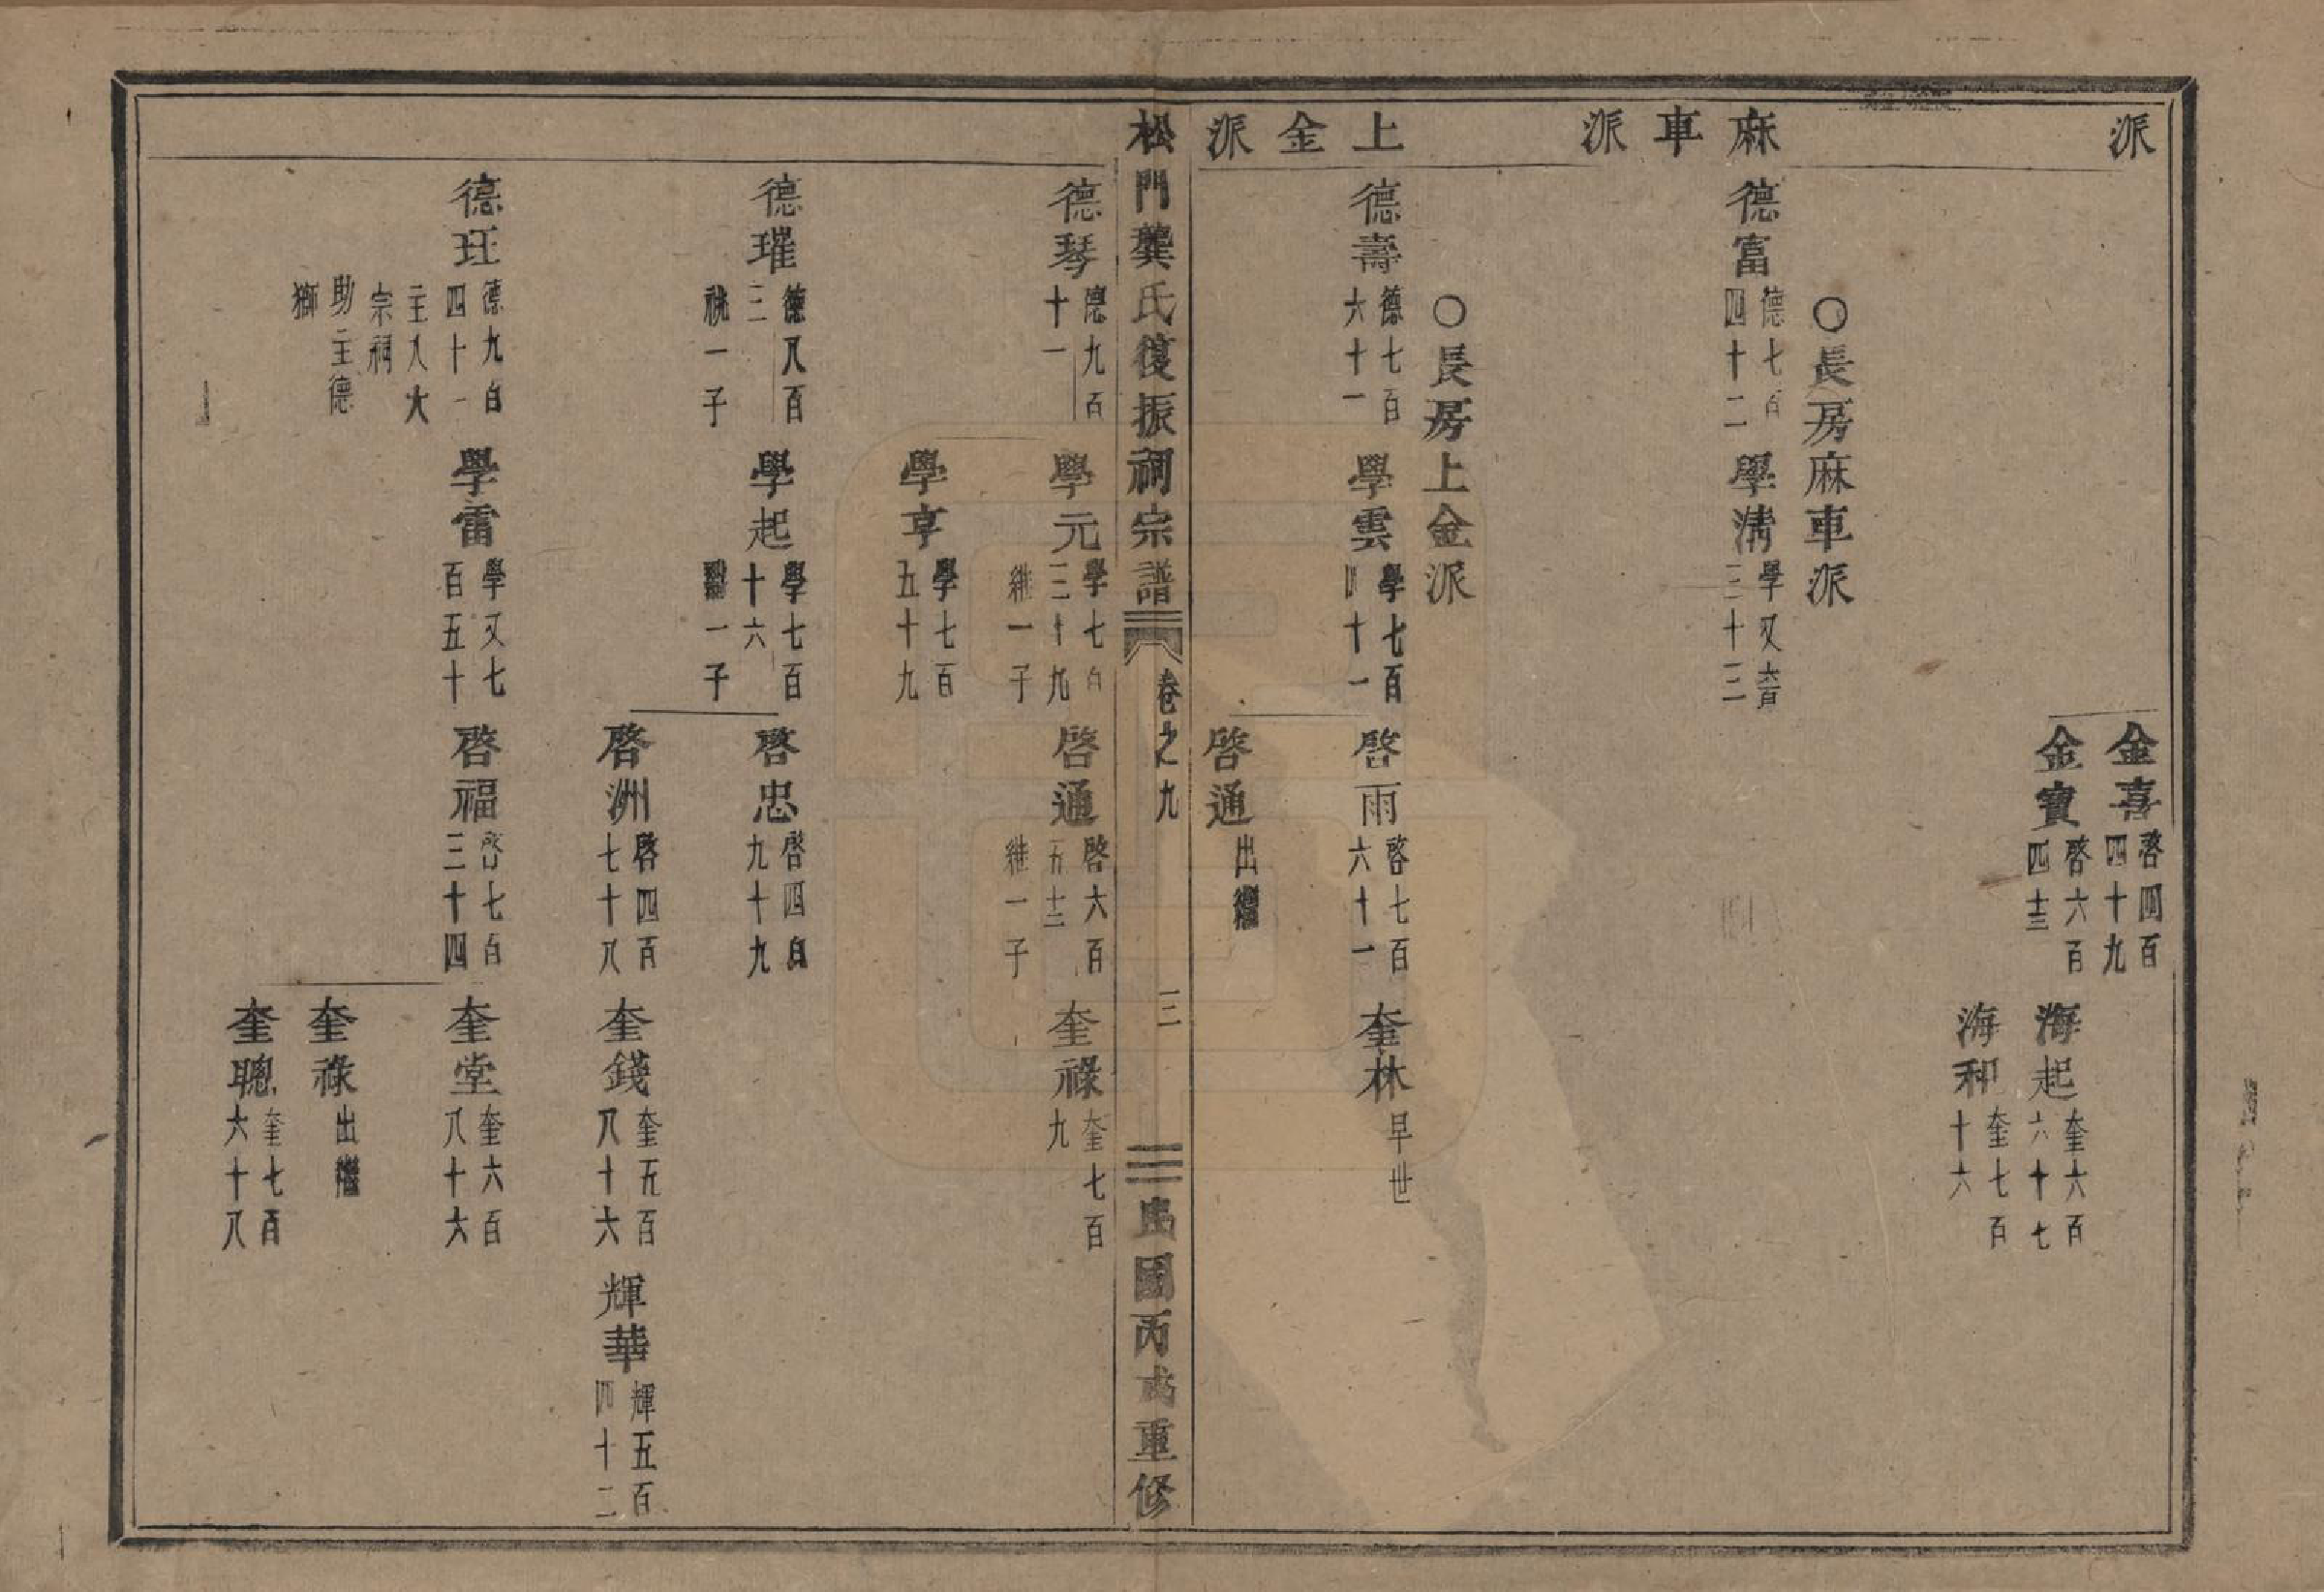 派
金喜 啓四百四十九
金寶 啓六百四十三
海起 奎六百六十七
海和 奎七百十六
麻車派
○長房麻車派
德富 德七百四十二
學清 學又六百三十三
上金派
○長房上金派
德壽 德七百六十一
學雲 學七百四十一
啓雨 啓七百六十一
奎林 早世
啓通 出繼
松門龔氏復振祠宗譜 卷之九 三 民國丙戌重修
德琴 德九百十一
學元 學七百三十九 継一子
啓通 啓六百五十二 継一子
奎祿 奎七百九
學亨 學七百五十九
德璀 德八百三 祧一子
學起 學七百十六 繼一子
啓忠 啓四百九十九
啓洲 啓四百七十八
奎錢 奎五百八十六
輝華 輝五百四十二
德玨 德九百四十一 主入大宗祠 助主德獅
學雷 學又七百五十
啓福 啓七百三十四
奎堂 奎六百八十六
奎祿 出繼
奎聰 奎七百六十八